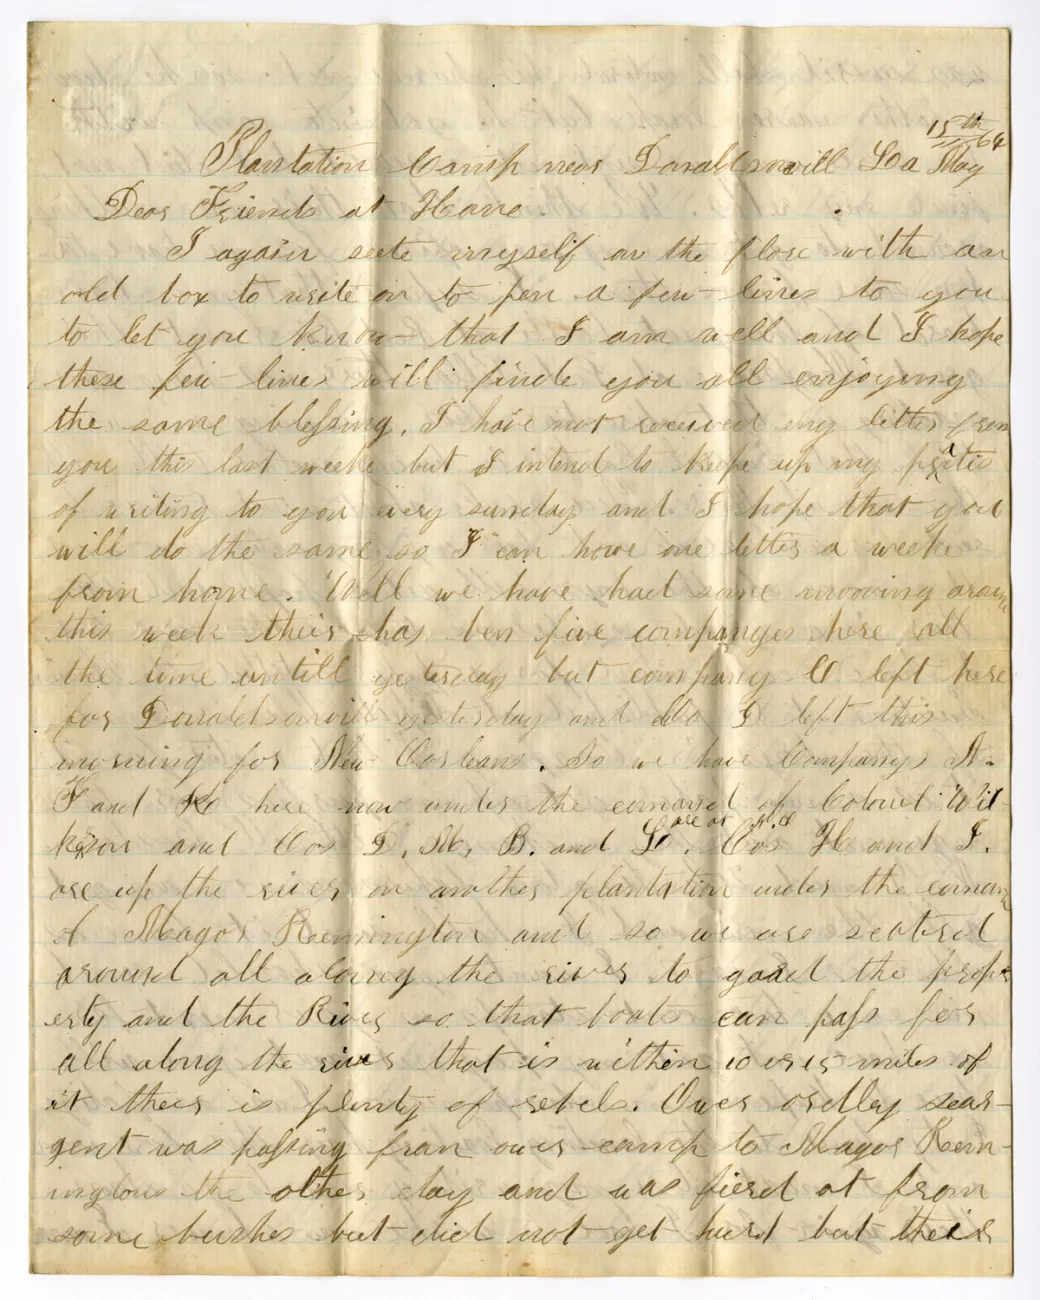 15th 64
Plantation Camp near Donaldsonvill La May
Dear Friends at Home.
I again seete myself on the flore with an
old box to write on to pen a few lines to you
to let you know that I am well and I hope
these few lines will finde you all enjoying
the same blessing. I have not received any letter from
you this last weeke but I intend to keep up my
of writing to you every sunday and I hope that you
will do the same so I can have one letter a weeke
from home. Well we have had some mooving around
this week their has ben five companyes here all
the time untill yesterday but company G left here
for Donaldsonvill yesterday and Co D left this
morning for New Orleans. So we have Companys A.
F and K here now under the comand of Colonel Wil-
and Cos E. M, B. and L are at Cos H and I.
are up the river on another plantation under the comand
of Magor Remington and so we are scatered
around all along the river to gard the prop
erty and the River so that boats can pass for
all along the river that is within 10 or 15 miles of
it their is plenty of rebels. Ower ordley sear-
gent was passing from ower camp to Magor Rem-
ingtons the other day and was fierd at from
some bushes but did not get hurt but their